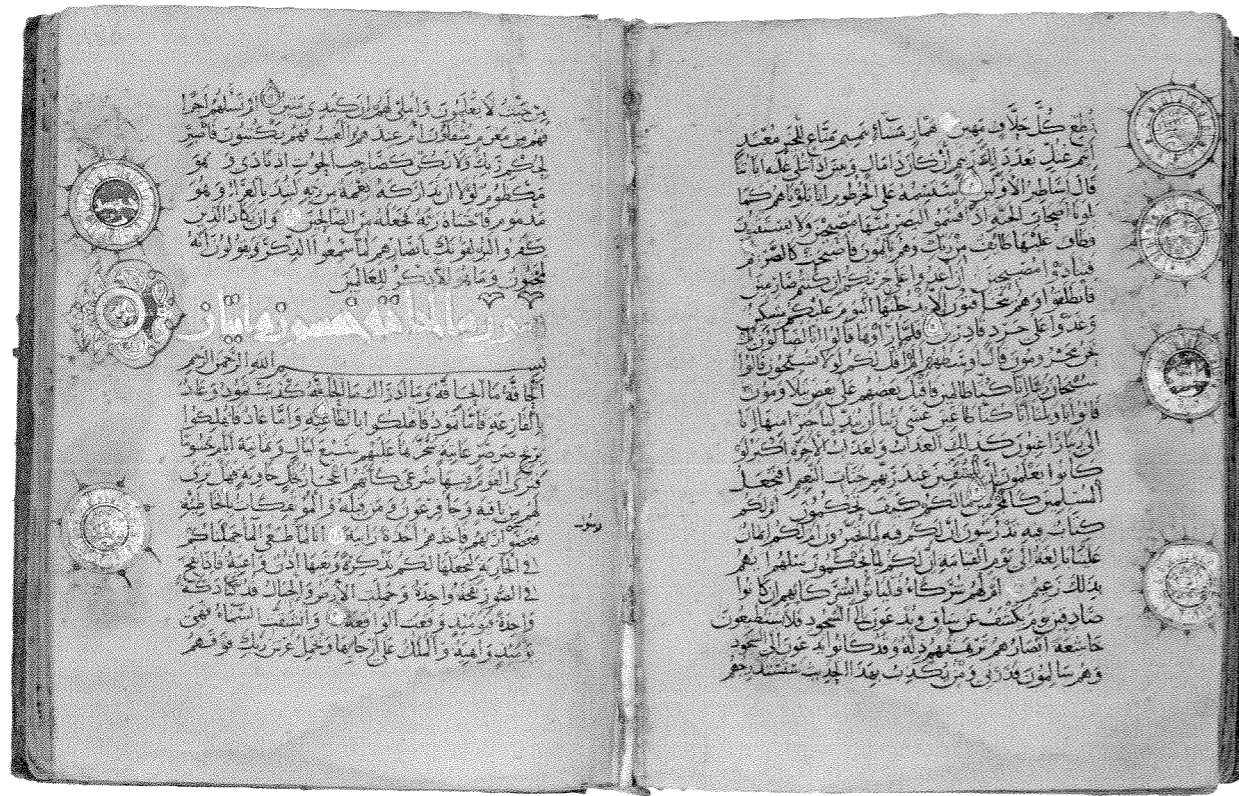 تطع كل حلاف مهين هماز مشاء بنميم مناع للخير معتد
اثيم عتل بعد ذلك زنيم ان كان ذا مال وبنين اذا تتلى عليه اياتنا
قال اساطير الاولين سنسمه على الخرطوم انا بلوناهم كما
بلونا اصحاب الجنة اذ اقسموا ليصرمنها مصبحين ولا يستثنون
فطاف عليها طائف من ربك وهم نائمون فاصبحت كالصريم
فتنادوا مصبحين ان اغدوا على حرثكم ان كنتم صارمين
فانطلقوا وهم يتخافتون الا يدخلنها اليوم عليكم مسكين
وغدوا على حرد قادرين فلما راوها قالوا انا لضالون بل
نحن محرومون قال اوسطهم الم اقل لكم لولا تسبحون قالوا
سبحان ربنا انا كنا ظالمين فاقبل بعضهم على بعض يتلاومون
قالوا يا ويلنا انا كنا طاغين عسى ربنا ان يبدلنا خيرا منها انا
الى ربنا راغبون كذلك العذاب ولعذاب الاخرة اكبر لو
كانوا يعلمون ان للمتقين عند ربهم جنات النعيم افنجعل
المسلمين كالمجرمين ما لكم كيف تحكمون ام لكم
كتاب فيه تدرسون ان لكم فيه لما تخيرون ام لكم ايمان
علينا بالغة الى يوم القيامة ان لكم لما تحكمون سلهم ايهم
بذلك زعيم ام لهم شركاء فليأتوا بشركائهم ان كانوا
صادقين يوم يكشف عن ساق ويدعون الى السجود فلا يستطيعون
خاشعة ابصارهم ترهقهم ذلة وقد كانوا يدعون الى السجود
وهم سالمون فذرني ومن يكذب بهذا الحديث سنستدرجهم
من حيث لا يعلمون واملي لهم ان كيدي متين ام تسئلهم اجرا
فهم من مغرم مثقلون ام عندهم الغيب فهم يكتبون فاصبر
لحكم ربك ولا تكن كصاحب الحوت اذ نادى وهو
مكظوم لولا ان تداركه نعمة من ربه لنبذ بالعراء وهو
مذموم فاجتباه ربه فجعله من الصالحين وان يكاد الذين
كفروا ليزلقونك بابصارهم لما سمعوا الذكر ويقولون انه
لمجنون وما هو الا ذكر للعالمين
سورة الحاقة خمسون وايتان
بسم الله الرحمن الرحيم
الحاقة ما الحاقة وما ادراك ما الحاقة كذبت ثمود وعاد
بالقارعة فاما ثمود فاهلكوا بالطاغية واما عاد فاهلكوا
بريح صرصر عاتية سخرها عليهم سبع ليال وثمانية ايام حسوما
فترى القوم فيها صرعى كانهم اعجاز نخل خاوية فهل ترى
لهم من باقية وجا فرعون ومن قبله والمؤتفكات بالخاطئة
فعصوا رسول ربهم فاخذهم اخذة رابية انا لما طغى الما حملناكم
في الجارية لنجعلها لكم تذكرة وتعيها اذن واعية فاذا نفخ
في الصور نفخة واحدة وحملت الارض والجبال فدكتا دكة
واحدة فيومئذ وقعت الواقعة وانشقت السماء فهي
يومئذ واهية والملك على ارجائها ويحمل عرش ربك فوقهم